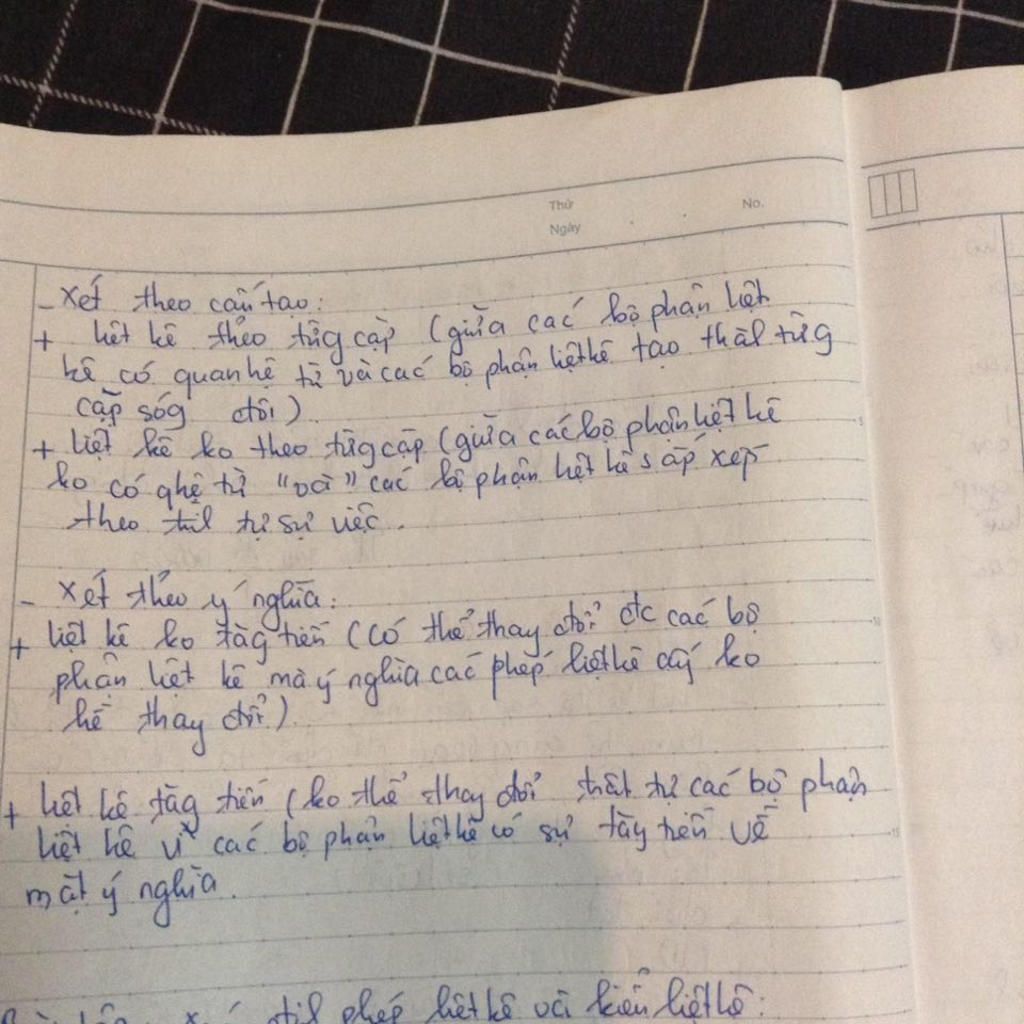 Thứ
No.
Ngày
- Xét theo cấu tạo:
+ liệt kê theo từg cặp (giữa các bộ phận liệt
kê có quan hệ từ và các bộ phận liệt kê tạo thàl từg
cặp sóg đôi)
+ liệt kê ko theo từg cặp (giữa các bộ phận liệt kê
ko có qhệ từ "và" các bộ phận liệt kê sắp xếp
theo tự sự việc.
- Xét theo ý nghĩa:
+ liệt kê ko tăg tiến (có thể thay đổi đc các bộ
phận liệt kê mà ý nghĩa các phép liệt kê ko
hề thay đổi).
+ liệt kê tăg tiến (ko thể thay đổi trật tự các bộ phận
liệt kê vì các bộ phận liệt kê có sự tăy tiến về
mặt ý nghĩa.
phép liệt kê và kiểu liệt kê: